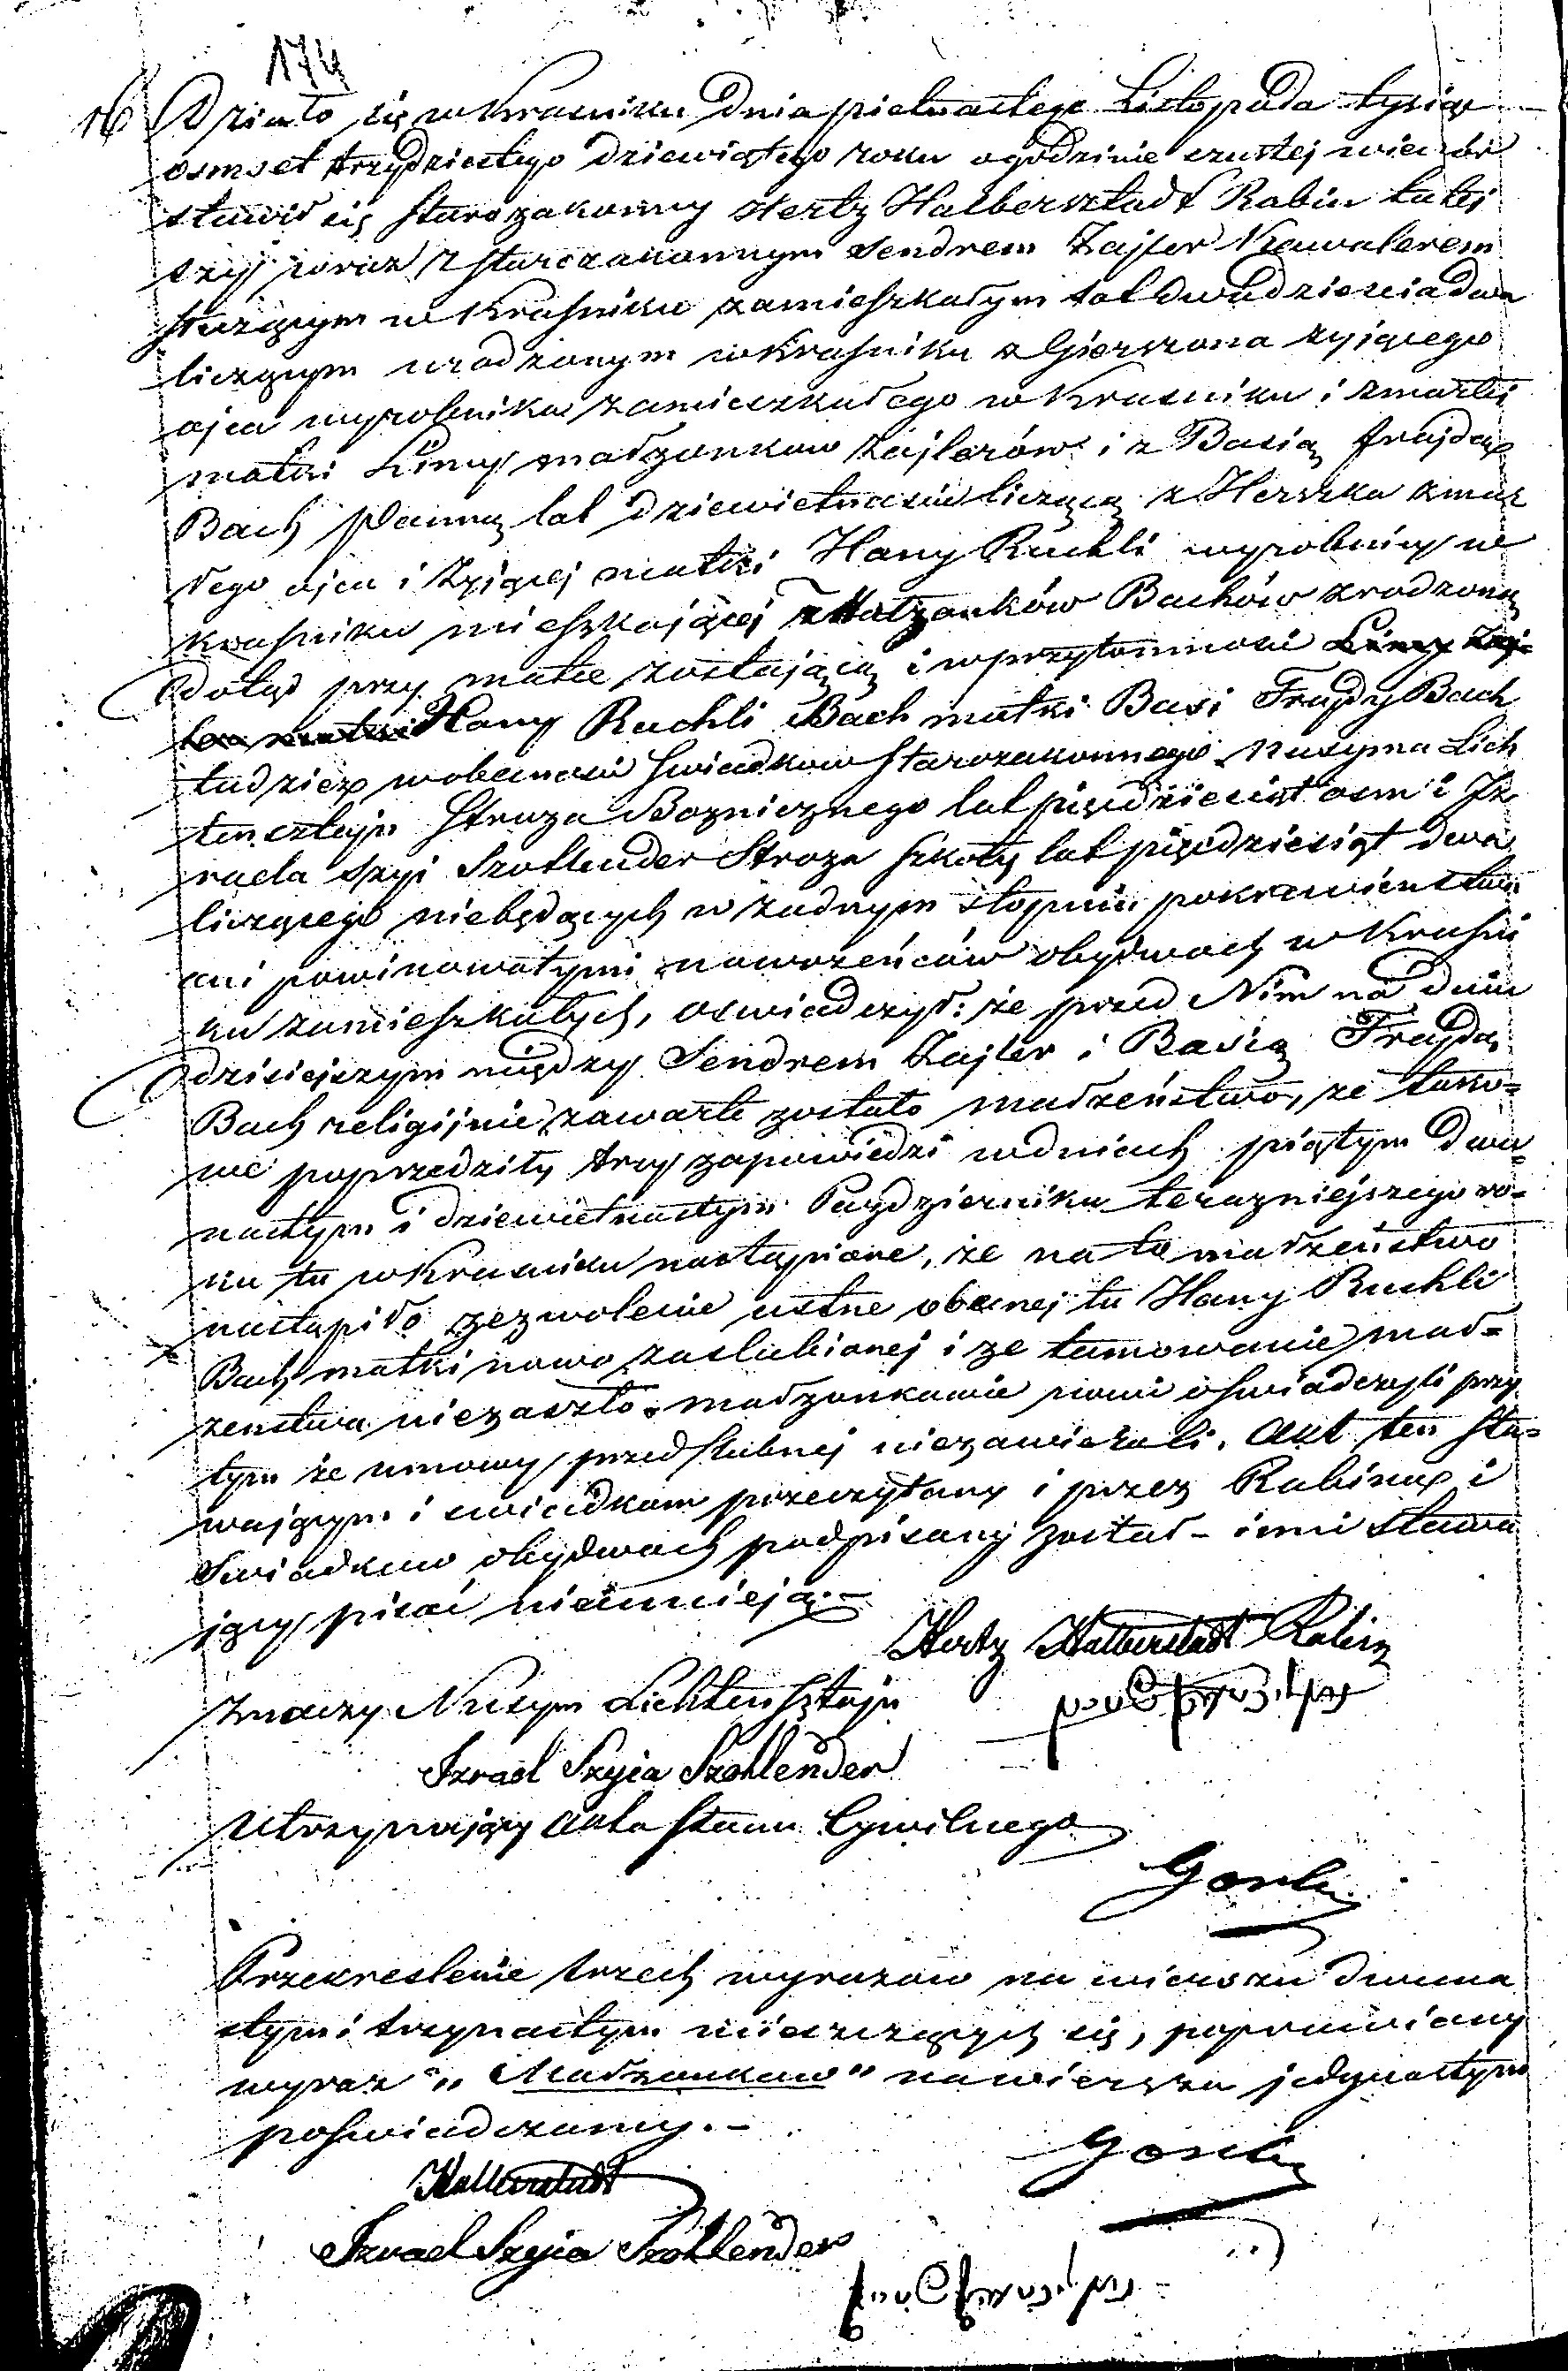 174
16 Działo się w Krasniku dnia pietnastego Listopada tysiąc
osmset trzydziestego dziewiątego roku o godzinie szustej wieczor
stawił się starozakonny Hertz Halbersztadt Rabin tutej
szy wraz z starozakonnym Sendrem Zajler Kawalerem
służącym w Kraśniku zamieszkałym lat dwadzieścia dwa
liczącym urodzonym w Kraśniku z Gierszona żyjącego
ojca wyrobnika zamieszkałego w Krasniku i zmarłej
matki Limy małżonkow Zajlerów i z Basią Frajdą
Bach Panną lat dziewietnascie liczącą z Herszka zmar
łego ojca i żyjącej matki Hany Ruchli wyrobnicy w
Kraśniku mieszkającej Małżonków Bachów zrodzoną
dotąd przy matce zostającą i w przytomnosci Limy Zaj-
ler matki Hany Ruchli Bach matki Basi Frajdy Bach
tudzież w obecnosci świadkow starozakonnego Nusyma Lich
tensztajn Stroza Bozniczego lat pięćdziesiąt osm i Iz
raela Szyi Szotlender Stroza szkoły lat pięćdziesiąt dwa
liczącego niebędących w żadnym stopniu pokrewieństwa
ani powinowatymi nowożeńców obydwoch w Kraśni
ku zamieszkałych, oswiadczył: że przed Nim na dniu
dzisiejszym między Sendrem Zajler i Basią Frajdą
Bach religijnie zawarte zostało małżeństwo, że tako-
we poprzedziły trzy zapowiedzi w dniach piątym dwu-
nastym i dziewietnastym Pazdziernika terazniejszego ro-
ku tu w Krasniku nastąpione, że na to małżeństwo
nastąpiło zezwolenie ustne obecnej tu Hany Ruchli
Bach matki nowo zaslubionej i ze tamowanie mał-
żenstwa niezaszło. małżonkowie nowi oświadczyli przy
tym że umowy przedślubnej niezawierali. Akt ten sta-
wającym i swiadkom przeczytany i przez Rabina i
Swiadkow obydwoch podpisany został - inni stawa
jący pisać nieumieją.-
Hertz Halberstadt Rabin
Znaczy Nusym Lichtensztajn
Izrael Szyia Szotlender
Utrzymujący Akta Stanu Cywilnego
Przekreslenie trzech wyrazow na wierszu dwuna
stym i trzynastym mieszczących się, poprawiony
wyraz "Małżonkow" na wierszu jedynastym
poświadczamy.-
Halberstadt
Izrael Szyia Szotlender